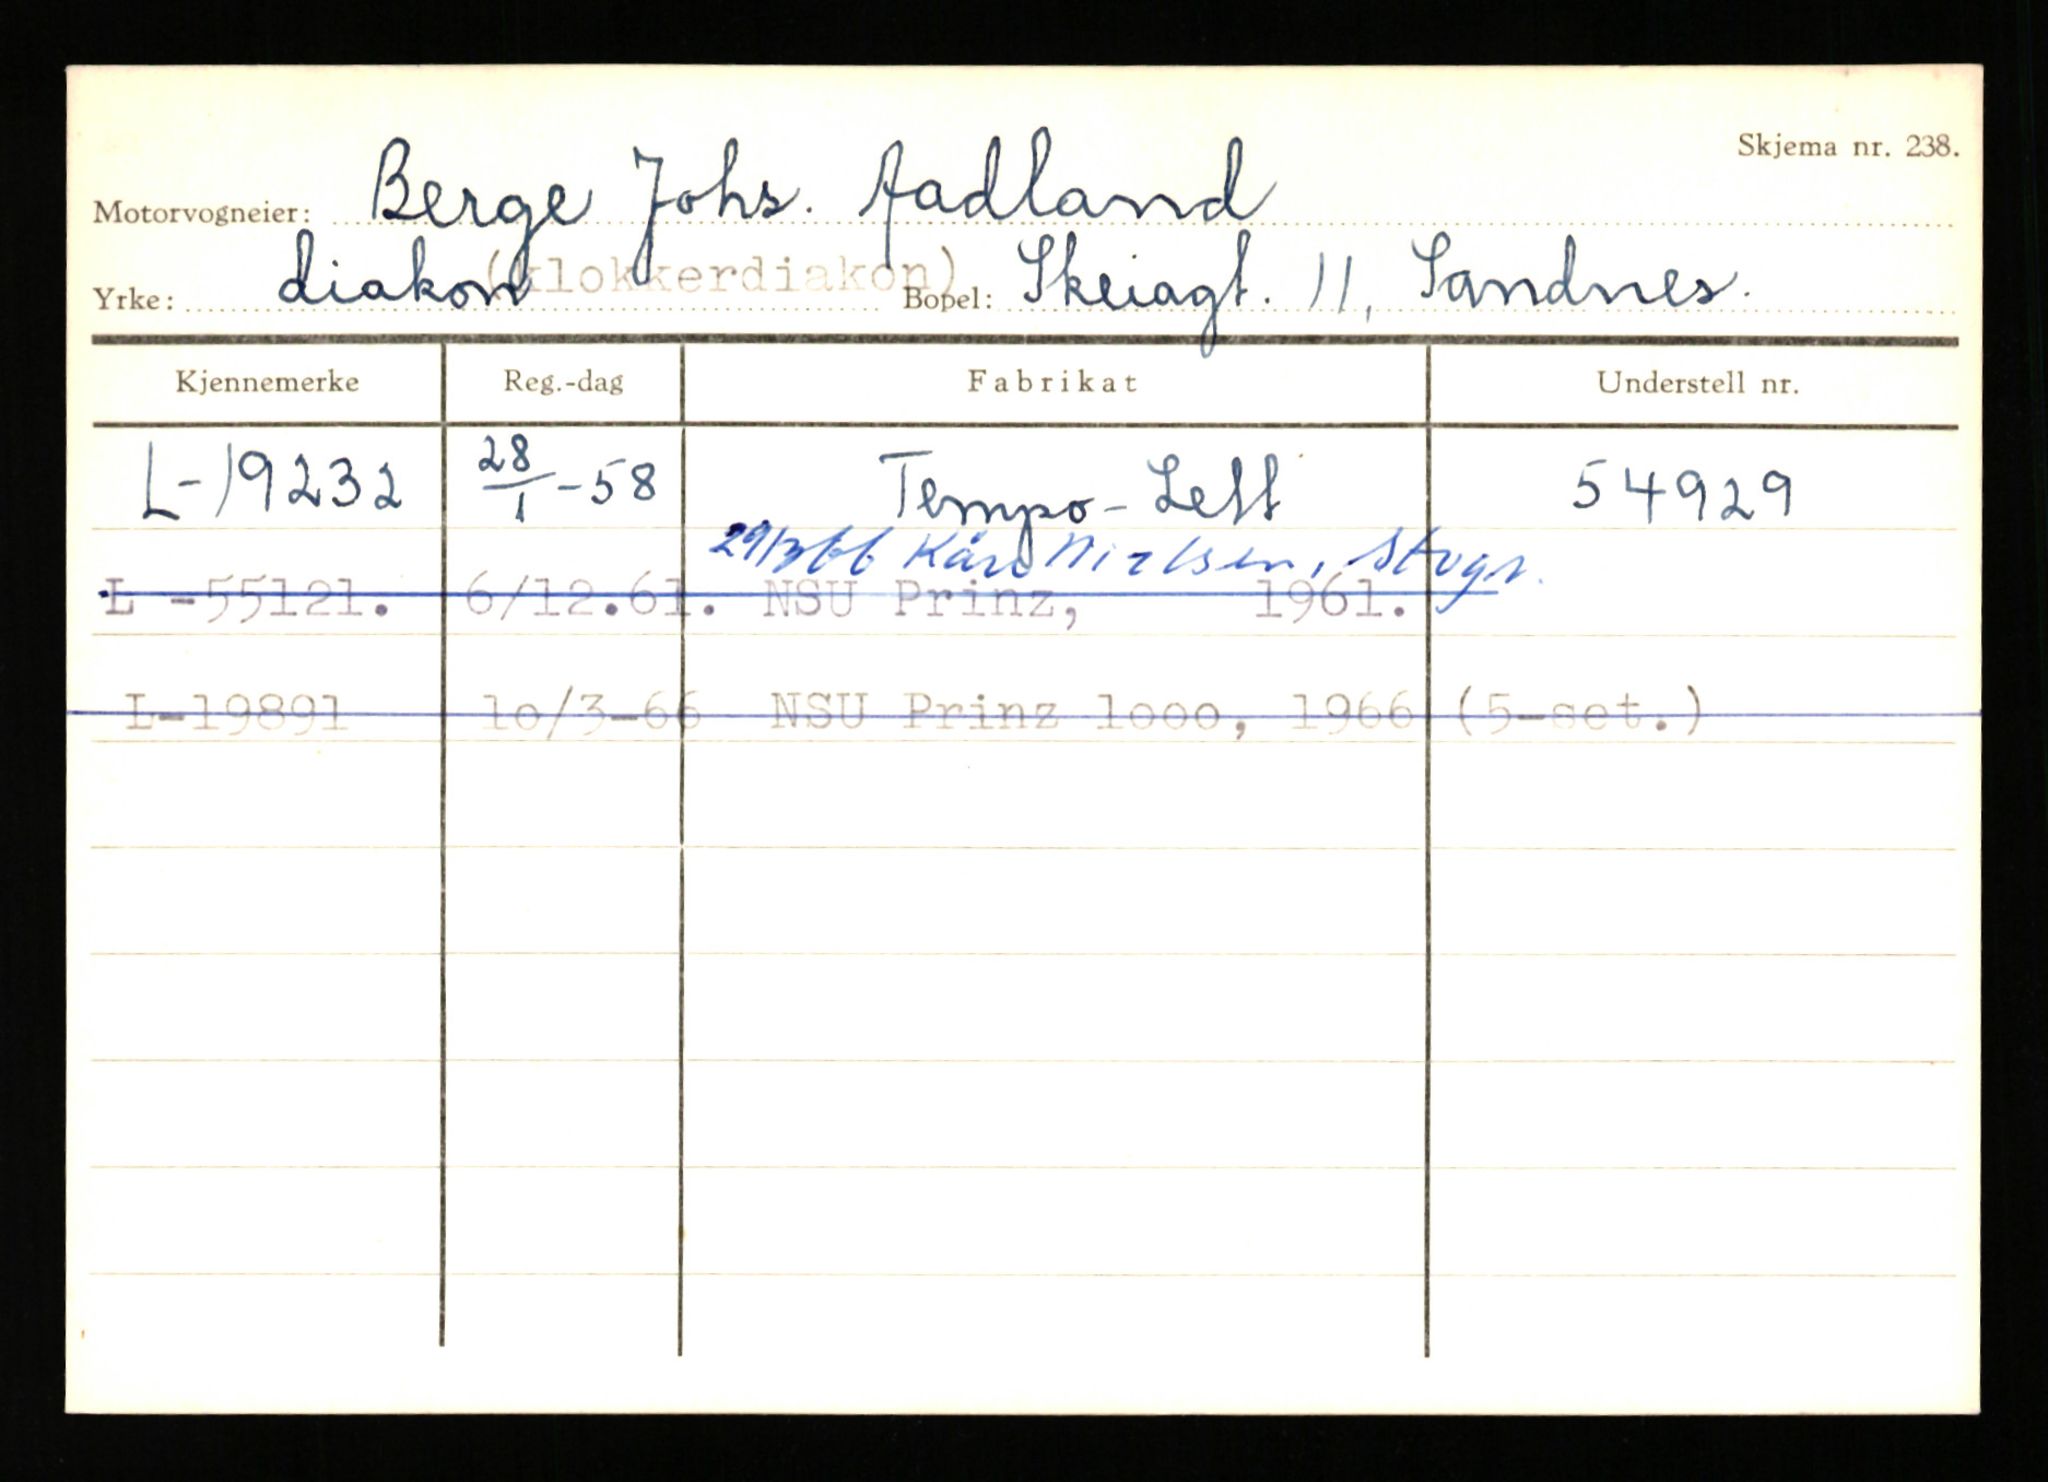 Skjema nr. 238.
Motorvogneier: Berge Johs. Aadland
Yrke: diakon (klokkerdiakon) Bopel: Skeiagt. 11, Sandnes.
Kjennemerke Reg.-dag Fabrikat Understell nr.
L-19232 28/1-58 Tempo-Lett 54929
29/3 66 Kåre Nielsen, Stvgr.
L -55121. 6/12.61. NSU Prinz, 1961.
L-19891 10/3-66 NSU Prinz 1000, 1966 (5-set.)